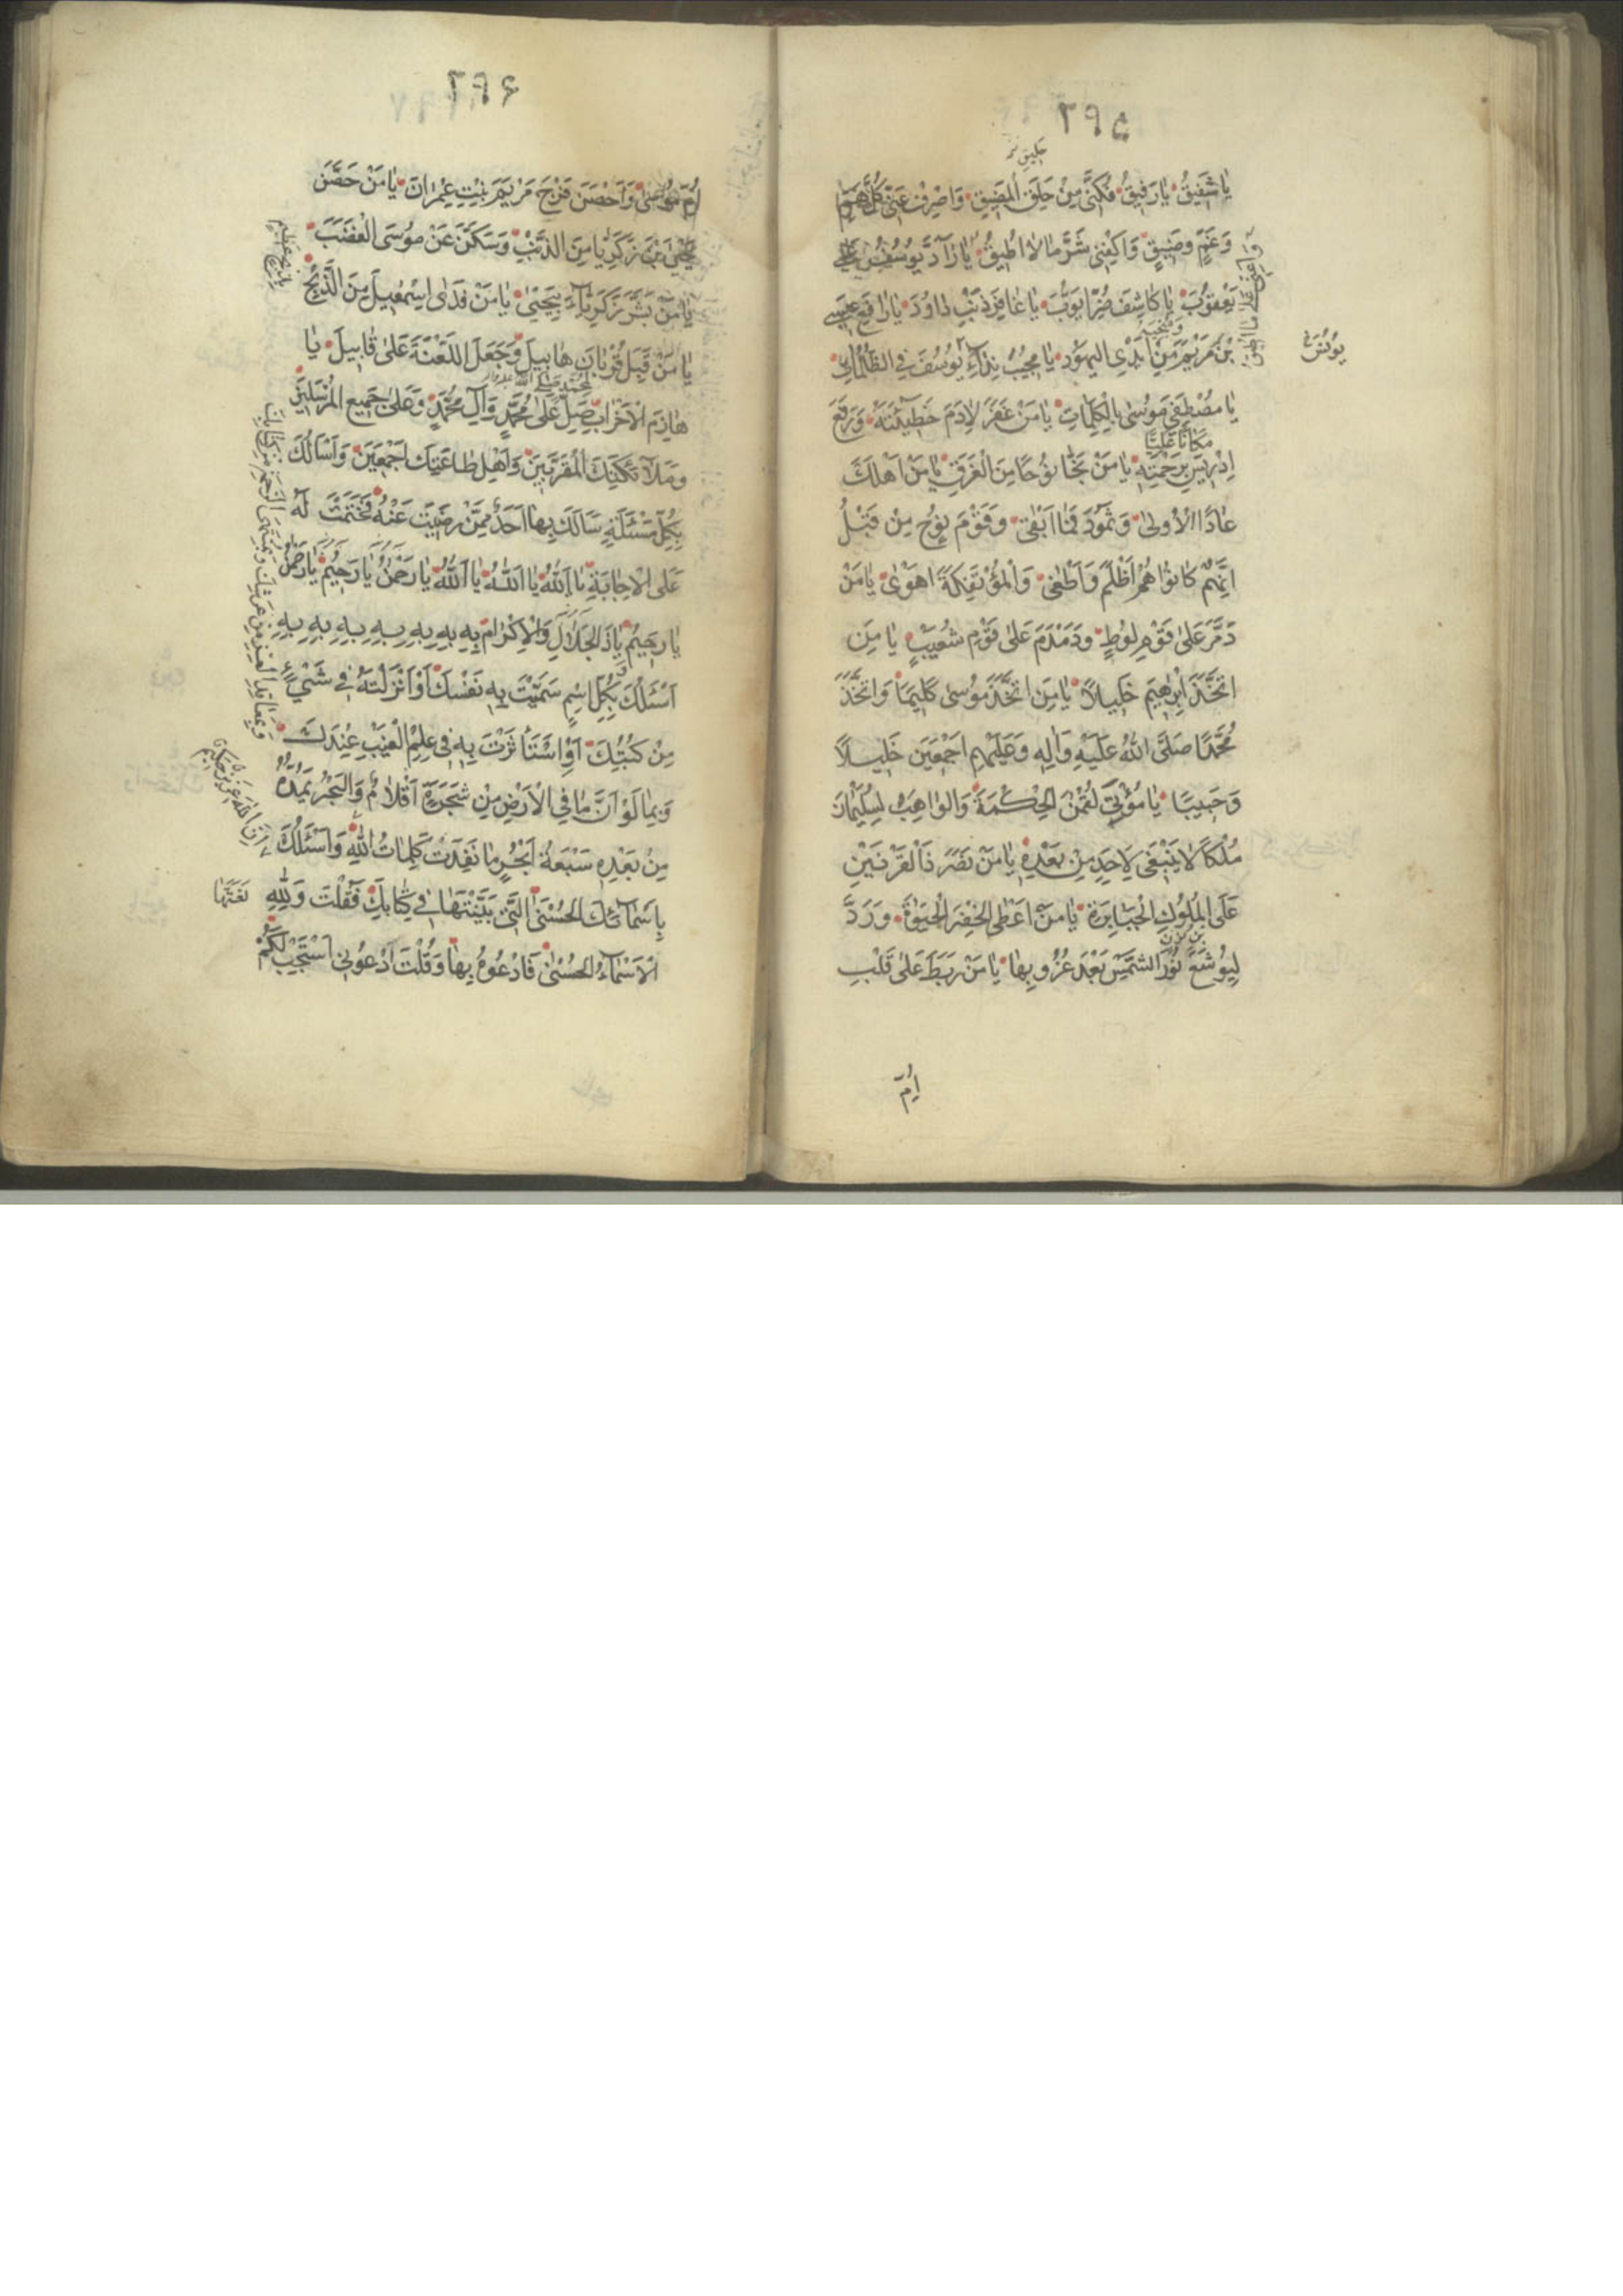 ۲۹۵
يٰا شَفيقُ يٰا رَفيقُ فُكَّني مِنْ حَلَقِ الْمَضيقِ وَاصْرِفْ عَنّي كُلَّ هَمٍّ
وَغَمٍّ وَضيقٍ وَاكْفِني شَرَّ مٰا لاٰ اُطيقُ يٰا رٰآدَّ يُوسُفَ عَلىٰ
يَعْقُوبَ يٰا كٰاشِفَ ضُرِّ اَيُّوبَ يٰا غٰافِرَ ذَنْبِ دٰاوُدَ يٰا رٰافِعَ عيسَى
بْنَ مَرْيَمَ مِنْ اَيْدِى الْيَهُودِ يٰا مُجيبَ نِدٰآءِ يُوسُفَ فِى الظُّلُمٰاتِ
يٰا مُصْطَفِىَ مُوسىٰ بِالْكَلِمٰاتِ يٰا مَنْ غَفَرَ لِاٰدَمَ خَطيٓئَتَهُ وَرَفَعَ
مَكٰانًا عَلِيًّا
اِدْريسَ بِرَحْمَتِهِ يٰا مَنْ نَجّٰا نُوحًا مِنَ الْغَرَقِ يٰا مَنْ اَهْلَكَ
عٰادًا الْاُولىٰ وَثَمُودَ فَمٰا اَبْقىٰ وَقَوْمَ نُوحٍ مِنْ قَبْلُ
اِنَّهُمْ كٰانُوا هُمْ اَظْلَمَ وَاَطْغىٰ وَالْمُؤْتَفِكَةَ اَهْوىٰ يٰا مَنْ
دَمَّرَ عَلىٰ قَوْمِ لُوطٍ وَدَمْدَمَ عَلىٰ قَوْمِ شُعَيْبٍ يٰا مَنِ
اتَّخَذَ اِبْرٰهيمَ خَليلاً يٰا مَنِ اتَّخَذَ مُوسىٰ كَليمًا وَاتَّخَذَ
مُحَمَّدًا صَلَّى اللّٰهُ عَلَيْهِ وَاٰلِهِ وَعَلَيْهِمْ اَجْمَعينَ خَليلاً
وَحَبيبًا يٰا مُؤْتِيَ لُقْمٰنَ الْحِكْمَةَ وَالْوٰاهِبَ لِسُلَيْمٰانَ
مُلْكًا لاٰ يَنْبَغى لِاَحَدٍ مِنْ بَعْدِهِ يٰا مَنْ نَصَرَ ذَا الْقَرْنَيْنِ
عَلَى الْمُلُوكِ الْجَبٰابِرَةِ يٰا مَنْ اَعْطَى الْخِضْرَ الْحَيٰوةَ وَرَدَّ
بْنِ نُونٍ
لِيُوشَعَ نُورَ الشَّمْسِ بَعْدَ غُرُوبِهٰا يٰا مَنْ رَبَطَ عَلىٰ قَلْبِ
اُمِّ
وَاَعِنّى عَلىٰ مٰا اُطيقُ
يُونُسَ
۲۹۶
اُمِّ مُوسىٰ وَاَحْصَنَ فَرْجَ مَرْيَمَ بِنْتِ عِمْرٰانَ يٰا مَنْ حَصَّنَ
يَحْيىٰ بْنَ زَكَرِيّٰا مِنَ الذَّنْبِ وَسَكَّنَ عَنْ مُوسَى الْغَضَبَ
يٰا مَنْ بَشَّرَ زَكَرِيّٰآءَ بِيَحْيىٰ يٰا مَنْ فَدٰى اِسْمٰعيلَ مِنَ الذَّبْحِ
يٰا مَنْ قَبِلَ قُرْبٰانَ هٰابيلَ وَجَعَلَ اللَّعْنَةَ عَلىٰ قٰابيلَ يٰا
هٰازِمَ الْاَحْزٰابِ صَلِّ عَلىٰ مُحَمَّدٍ وَآلِ مُحَمَّدٍ وَعَلىٰ جَميعِ الْمُرْسَلينَ
وَمَلآٰئِكَتِكَ الْمُقَرَّبينَ وَاَهْلِ طٰاعَتِكَ اَجْمَعينَ وَاَسْأَلُكَ
بِكُلِّ مَسْئَلَةٍ سَأَلَكَ بِهٰا اَحَدٌ مِمَّنْ رَضيتَ عَنْهُ فَحَتَمْتَ لَهُ
عَلَى الْاِجٰابَةِ يٰا اَللّٰهُ يٰا اَللّٰهُ يٰا اَللّٰهُ يٰا رَحْمٰنُ يٰا رَحيمُ يٰا رَحْمٰنُ
يٰا رَحيمُ يٰا ذَا الْجَلاٰلِ وَالْاِكْرٰامِ بِهِ بِهِ بِهِ بِهِ بِهِ بِهِ بِهِ
اَسْئَلُكَ بِكُلِّ اسْمٍ سَمَّيْتَ بِهِ نَفْسَكَ اَوْ اَنْزَلْتَهُ في شَيْءٍ
مِنْ كُتُبِكَ اَوِ اسْتَأْثَرْتَ بِهِ في عِلْمِ الْغَيْبِ عِنْدَكَ
وَبِمٰا لَوْ اَنَّ مٰا فِى الْاَرْضِ مِنْ شَجَرَةٍ اَقْلاٰمٌ وَالْبَحْرُ يَمُدُّهُ
مِنْ بَعْدِهِ سَبْعَةُ اَبْحُرٍ مٰا نَفِدَتْ كَلِمٰاتُ اللّٰهِ وَاَسْئَلُكَ
بِاَسْمٰآئِكَ الْحُسْنَى الَّتى بَيَّنْتَهٰا فى كِتٰابِكَ فَقُلْتَ وَلِلّٰهِ
الْاَسْمٰآءُ الْحُسْنىٰ فَادْعُوهُ بِهٰا وَقُلْتَ ادْعُونى اَسْتَجِبْ لَكُمْ
بِذِبْحٍ عَظيمٍ
وَبِمَعٰاقِدِ الْعِزِّ مِنْ عَرْشِكَ وَبِمُنْتَهَى الرَّحْمَةِ مِنْ كِتٰابِكَ
اِنَّ اللّٰهَ عَزيزٌ حَكيمٌ
نَعَتَّهٰا